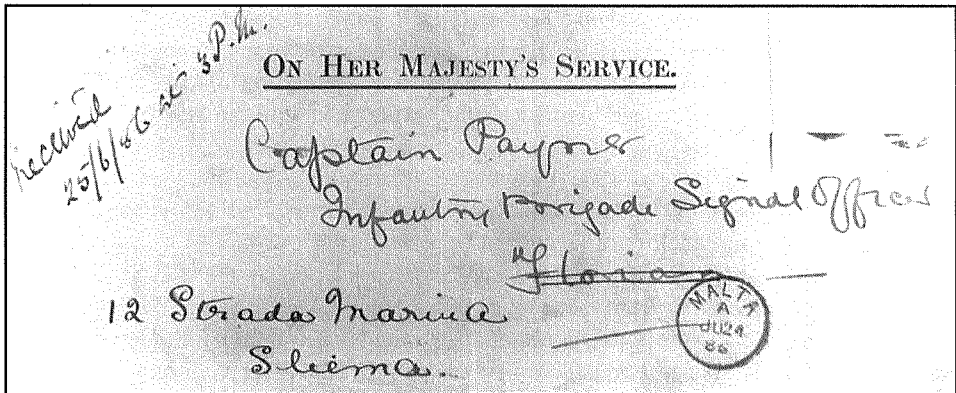 received
25/6/86 at 3 P.M.
ON HER MAJESTY'S SERVICE.
Captain Payne
Infantry Brigade Signal Officer
Floriana
12 Strada Marina
Sliema.
MALTA
A
JU 24
86